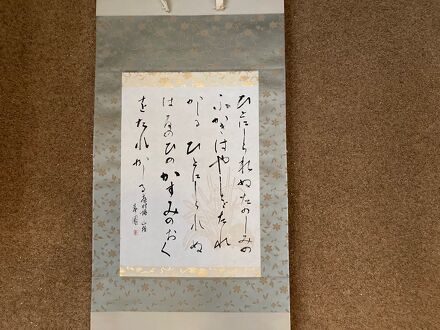 ひとにしられぬたのしみの
ふかきはやしをたれ
かしる ひとにしられぬ
はるのひのかすみのおく
をたれかしる